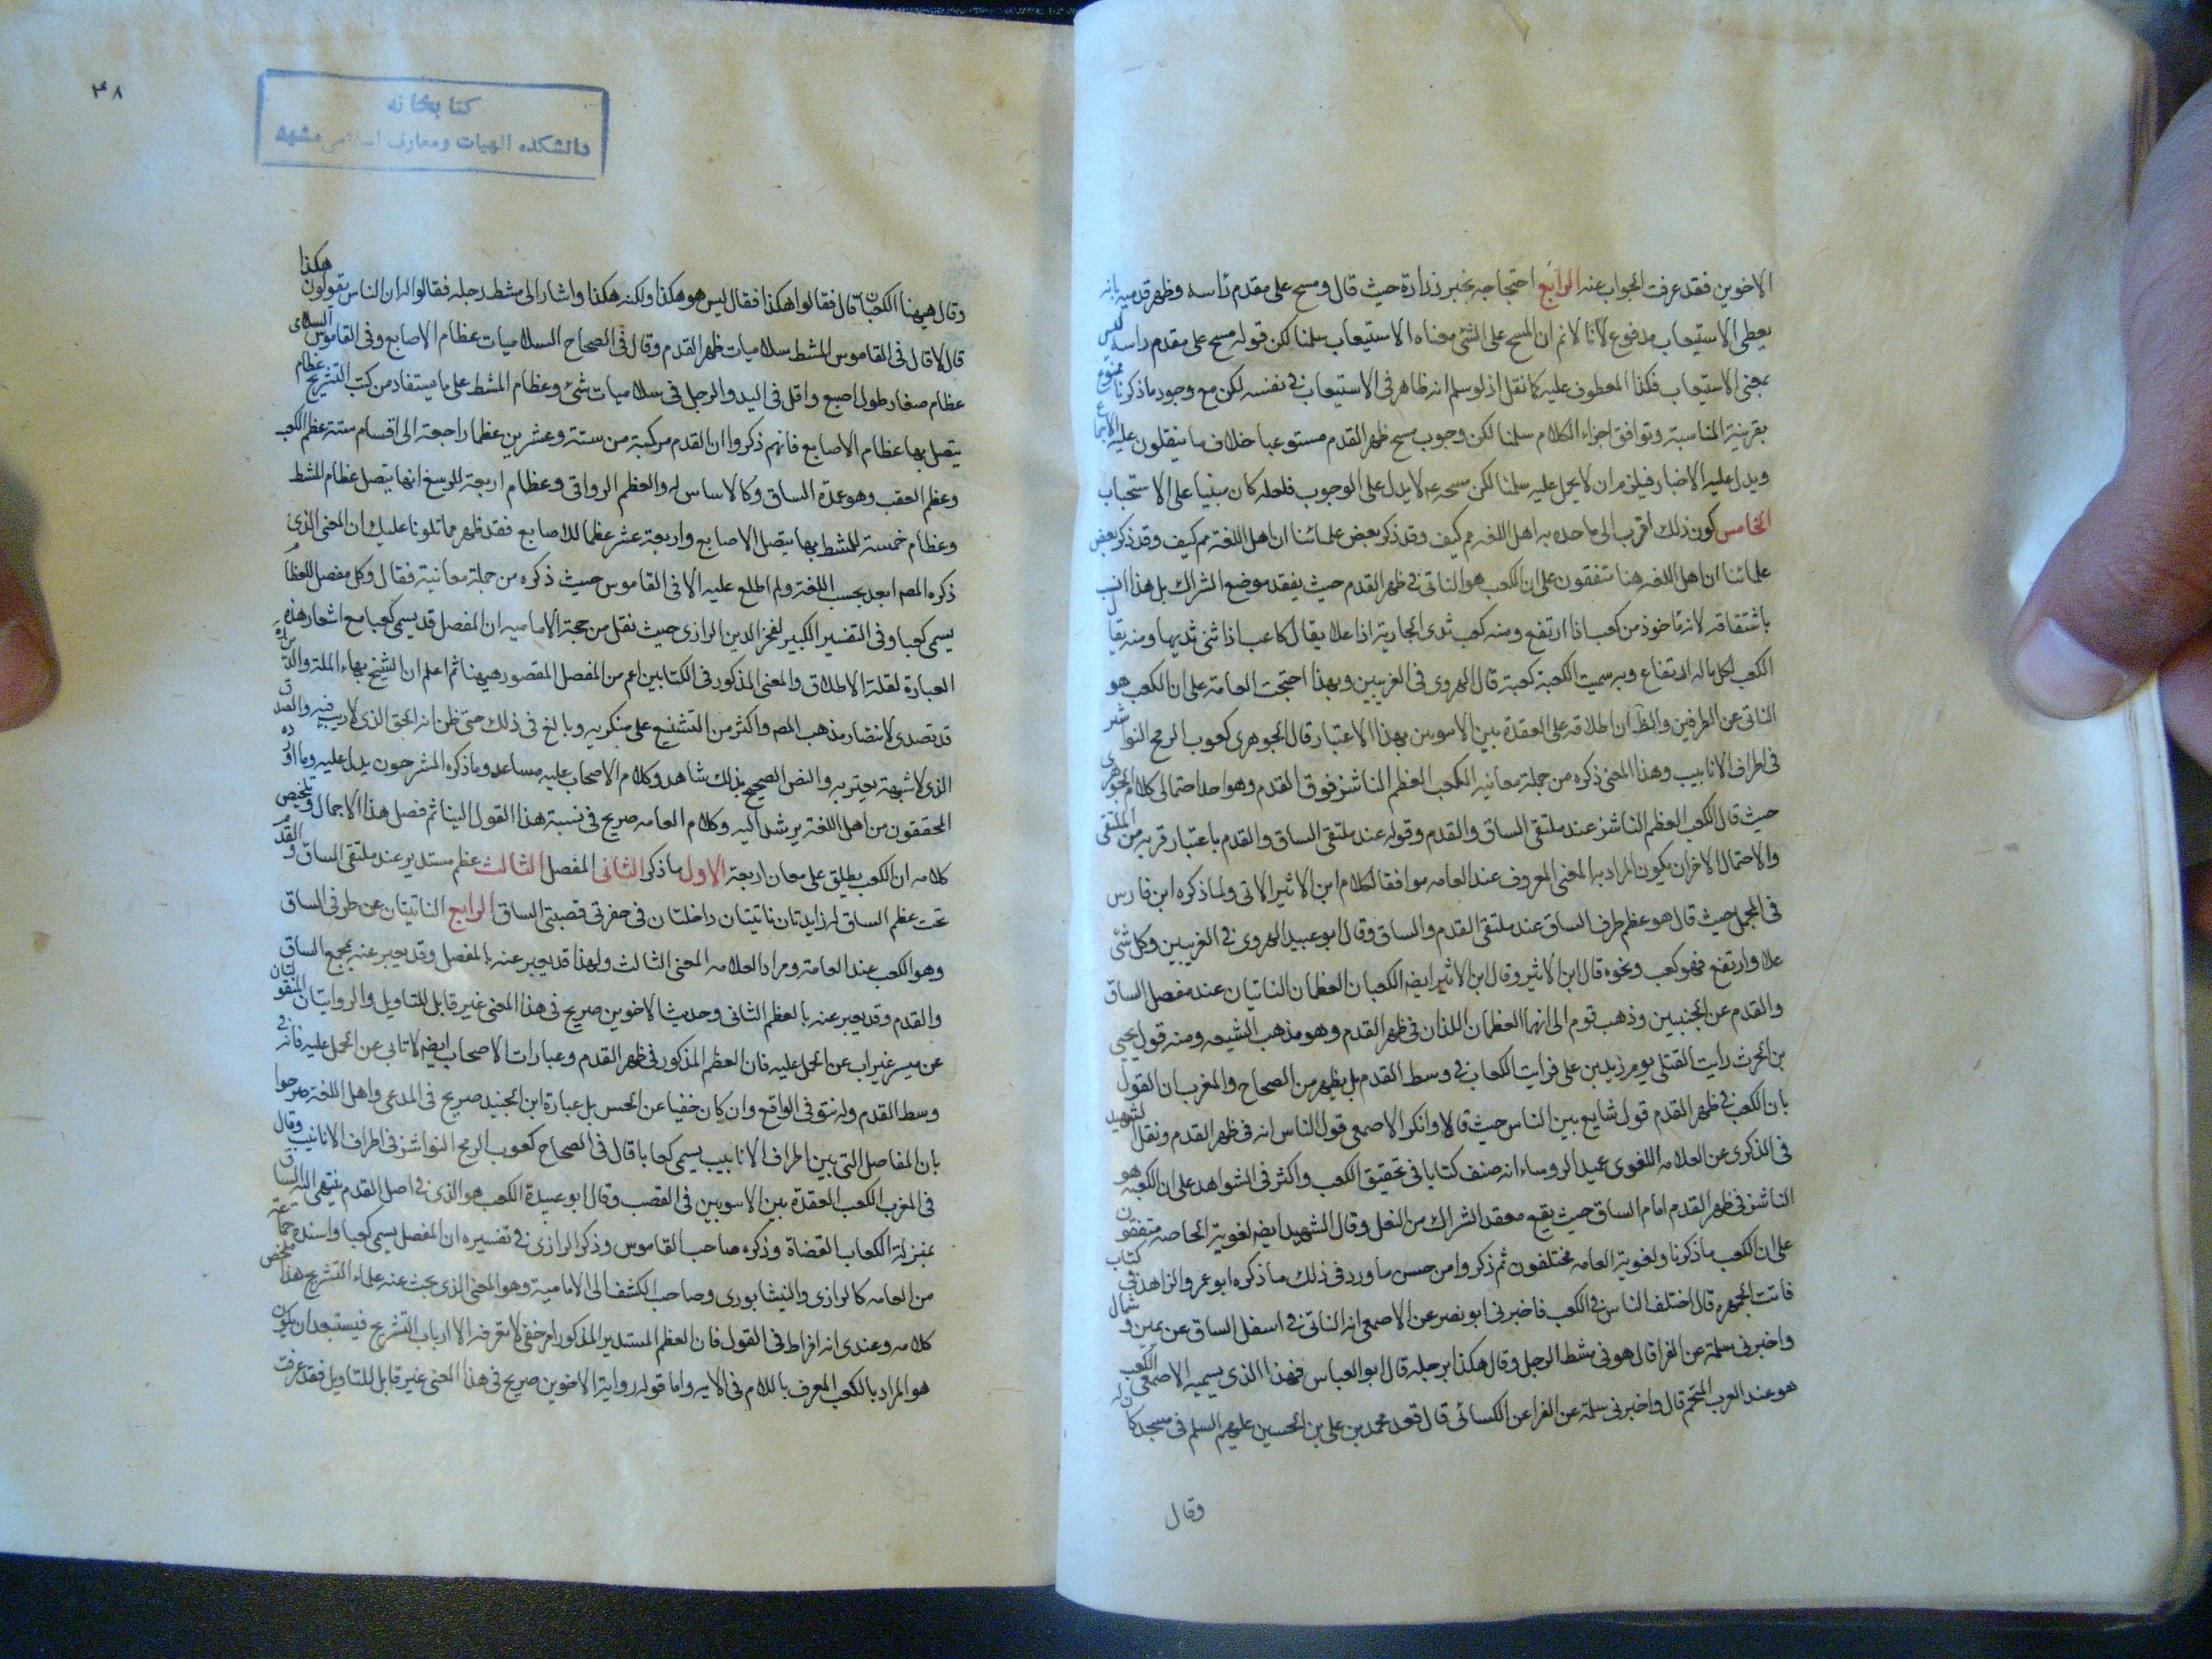 الاخوين فقد عرفت الجواب عنه الرابع احتجاجه بخبر زرارة حيث قال ومسح على مقدم راسه وظهر قدميه بانه
يعطى الاستيعاب مدفوع لانا لا نم ان المسح على الشئ معناه الاستيعاب سلمنا لكن قوله مسح على مقدم راسه ليس
بمعنى الاستيعاب فكذا المعطوف عليه كما نقل اذ لو سلم انه ظاهر فى الاستيعاب فى نفسه لكن مع وجود ما ذكرنا ممنوع
بقرينة المناسبة وتوافق اجزاء الكلام سلمنا لكن وجوب مسح ظهر القدم مستوعبا خلاف ما ينقلون عليه الاجماع
ويدل عليه الاخبار فيلزم ان لا يحمل عليه سلمنا لكن مسحه عم لا يدل على الوجوب فلعله كان مبنيا على الاستحباب
الخامس كون ذلك اقرب الى ما حده به اهل اللغه مم كيف وقد ذكر بعض علمائنا ان اهل اللغة مم كيف وقد ذكر بعض
علمائنا ان اهل اللغه هنا متفقون على ان الكعب هو الناتى فى ظهر القدم حيث يفقد موضع الشراك بل هذا انسب
باشتقاقه لانه ماخوذ من كعب اذا ارتفع ومنه كعب ثدى الجارية اذا علا يقال كاعب اذا ثنى ثديها ومنه يقال
الكعب لكل ماله ارتفاع وبه سميت الكعبة كعبة قال الهروى فى الغريبين وبهذا احتجت العامة على ان الكعب هو
الناتى عن الطرفين والظ ان اطلاقه على العقدة بين الاسوبين بهذا الاعتبار قال الجوهرى كعوب الرمح النواشر
فى اطراف الانابيب وهذا المعنى ذكره من جملة معانيه الكعب العظم الناشز فوق القدم وهو احد احتمالى كلام الجوهرى
حيث قال الكعب العظم الناشز عند ملتقى الساق والقدم وقوله عند ملتقى الساق والقدم باعتبار قربه من الملتقى
والاحتمال الاخر ان يكون المراد به المعنى المعروف عند العامه موافقا لكلام ابن الاثير الاتى ولما ذكره ابن فارس
فى المجمل حيث قال هو عظم طرف الساق عند ملتقى القدم والساق وقال ابو عبيد الهروى فى الغريبين وكل شئ
علا وارتفع فهو كعب ونحوه قال ابن الاثير وقال ابن الاثير ايضه الكعبان العظمان الناتيان عند مفصل الساق
والقدم عن الجنبين وذهب قوم الى انهما العظمان اللذان فى ظهر القدم وهو مذهب الشيعه ومنه قول يحيى
بن الحرث رايت القتلى يوم زيد بن على فرايت الكعاب فى وسط القدم بل يظهر من الصحاح والمغرب ان القول
بان الكعب فى ظهر القدم قول شايع بين الناس حيث قالا وانكر الاصمعى قول الناس انه فى ظهر القدم ونقل الشهيد
فى الذكرى عن العلامه اللغوى عميد الروساء انه صنف كتابا فى تحقيق الكعب واكثر فى الشواهد على ان الكعب هو
الناشز فى ظهر القدم امام الساق حيث يقع معقد الشراك من النعل وقال الشهيد ايضه لغوية الخاصه متفقون
على ان الكعب ما ذكرنا ولغوية العامه مختلفون ثم ذكروا من حسن ما ورد فى ذلك ما ذكره ابو عمر والزاهد فى كتاب
فائت الجمهره قال اختلف الناس فى الكعب فاخبرنى ابو نصر عن الاصمعى انه الناتى فى اسفل الساق عن يمين وشمال
واخبرنى سلمة عن الفرا قال هو فى مشط الرجل وقال هكذا برجله قال ابو العباس فهذا الذى يسميه الاصمعى الكعب
هو عند العرب المنجم قال واخبرنى سلمة عن الفرا عن الكسائى قال قعد محمد بن على بن الحسين عليهم السلم فى مسجد كان له
وقال
۴۸
كتابخانه
دانشكده الهيات ومعارف اسلامى مشهد
وقال هيهنا الكعبان قال فقالوا هكذا فقال ليس هو هكذا ولكنه هكذا واشار الى مشط رجله فقالوا له ان الناس يقولون هكذا
قال لا قال فى القاموس المشط سلاميات ظهر القدم وقال فى الصحاح السلاميات عظام الاصابع وفى القاموس السلامى
عظام صغار طول اصبع واقل فى اليد والرجل فى سلاميات شئ وعظام المشط على ما يستفاد من كتب التشريح عظام
يتصل بها عظام الاصابع فانهم ذكروا ان القدم مركبة من ستة وعشرين عظما راجعة الى اقسام ستة عظم الكعب
وعظم العقب وهو عمدة الساق وكالاساس له والعظم الزواقى وعظام اربعة للرسغ انها يتصل عظام المشط
وعظام خمسة للمشط بها يتصل الاصابع واربعة عشر عظما للاصابع فقد ظهر مما تلونا عليك ان المعنى الذى
ذكره المص ابعد بحسب اللغة ولم اطلع عليه الا فى القاموس حيث ذكره من جملة معانية فقال وكل مفصل للعظام
يسمى كعبا وفى التفسير الكبير لفخر الدين الرازى حيث نقل من حجة الاماميه ان المفصل قد يسمى كعبا مع اشعار هذه
العبارة لقلة الاطلاق والمعنى المذكور فى الكتابين اعم من المفصل المقصور هيهنا ثم اعلم ان الشيخ بهاء الملة والدين
قد تصدى لانتصار مذهب المص واكثر من التشنيع على منكريه وبالغ فى ذلك حتى ظن انه الحق الذى لا ريب فيه والصدق
الذى لا شبهة يعتريه والنص الصحيح بذلك شاهد وكلام الاصحاب عليه مساعد وما ذكره المشرحون يدل عليه وما اورده
المحققون من اهل اللغة يرشد اليه وكلام العامه صريح فى نسبة هذا القول الينا ثم فصل هذا الاجمال وتلخيص
كلامه ان الكعب يطلق على معان اربعة الاول ما ذكر الثانى المفصل الثالث عظم مستدير عند ملتقى الساق والقدم
تحت عظم الساق له زايدتان ناتيتان داخلتان فى حفرتى قصبتى الساق الرابع الناتيتان عن طرفى الساق
وهو الكعب عند العامة ومراد العلامه المعنى الثالث ولهذا قد يعبر عنه بالمفصل وقد يعبر عنه بمجمع الساق
والقدم وقد يعبر عنه بالعظم الثانى وحديث الاخوين صريح فى هذا المعنى غير قابل للتاويل والروايتان المنقولتان
عن ميسر غير اب عن الحمل عليه فان العظم المذكور فى ظهر القدم وعبارات الاصحاب ايضه لا تابى عن الحمل عليه فانه فى
وسط القدم وله نتو فى الواقع وان كان خفيا عن الحس بل عبارة ابن الجنيد صريح فى المدعى واهل اللغة صرحوا
بان المفاصل التى بين اطراف الانابيب يسمى كعابا قال فى الصحاح كعوب الرمح النواشز فى اطراف الانابيب وقال
فى المغرب الكعب العقدة بين الاسوبين فى القصب وقال ابو عبيدة الكعب هو الذى فى اصل القدم ينتهى اليه الساق
بمنزلة الكعاب القضاة وذكره صاحب القاموس وذكر الرازى فى تفسيره ان المفصل يسمى كعبا واسنده جماعة
من العامه كالرازى والنيشابورى وصاحب الكشف الى الامامية وهو المعنى الذى يبحث عنه علماء التشريح هذا ملخص
كلامه وعندى انه افراط فى القول فان العظم المستدير المذكور امر خفى لا يعرفه الا ارباب التشريح فيستبعد ان يكون
هو المراد بالكعب المعرف باللام فى الايه واما قوله رواية الاخوين صريح فى هذا المعنى غير قابل للتاويل فقد عرفت